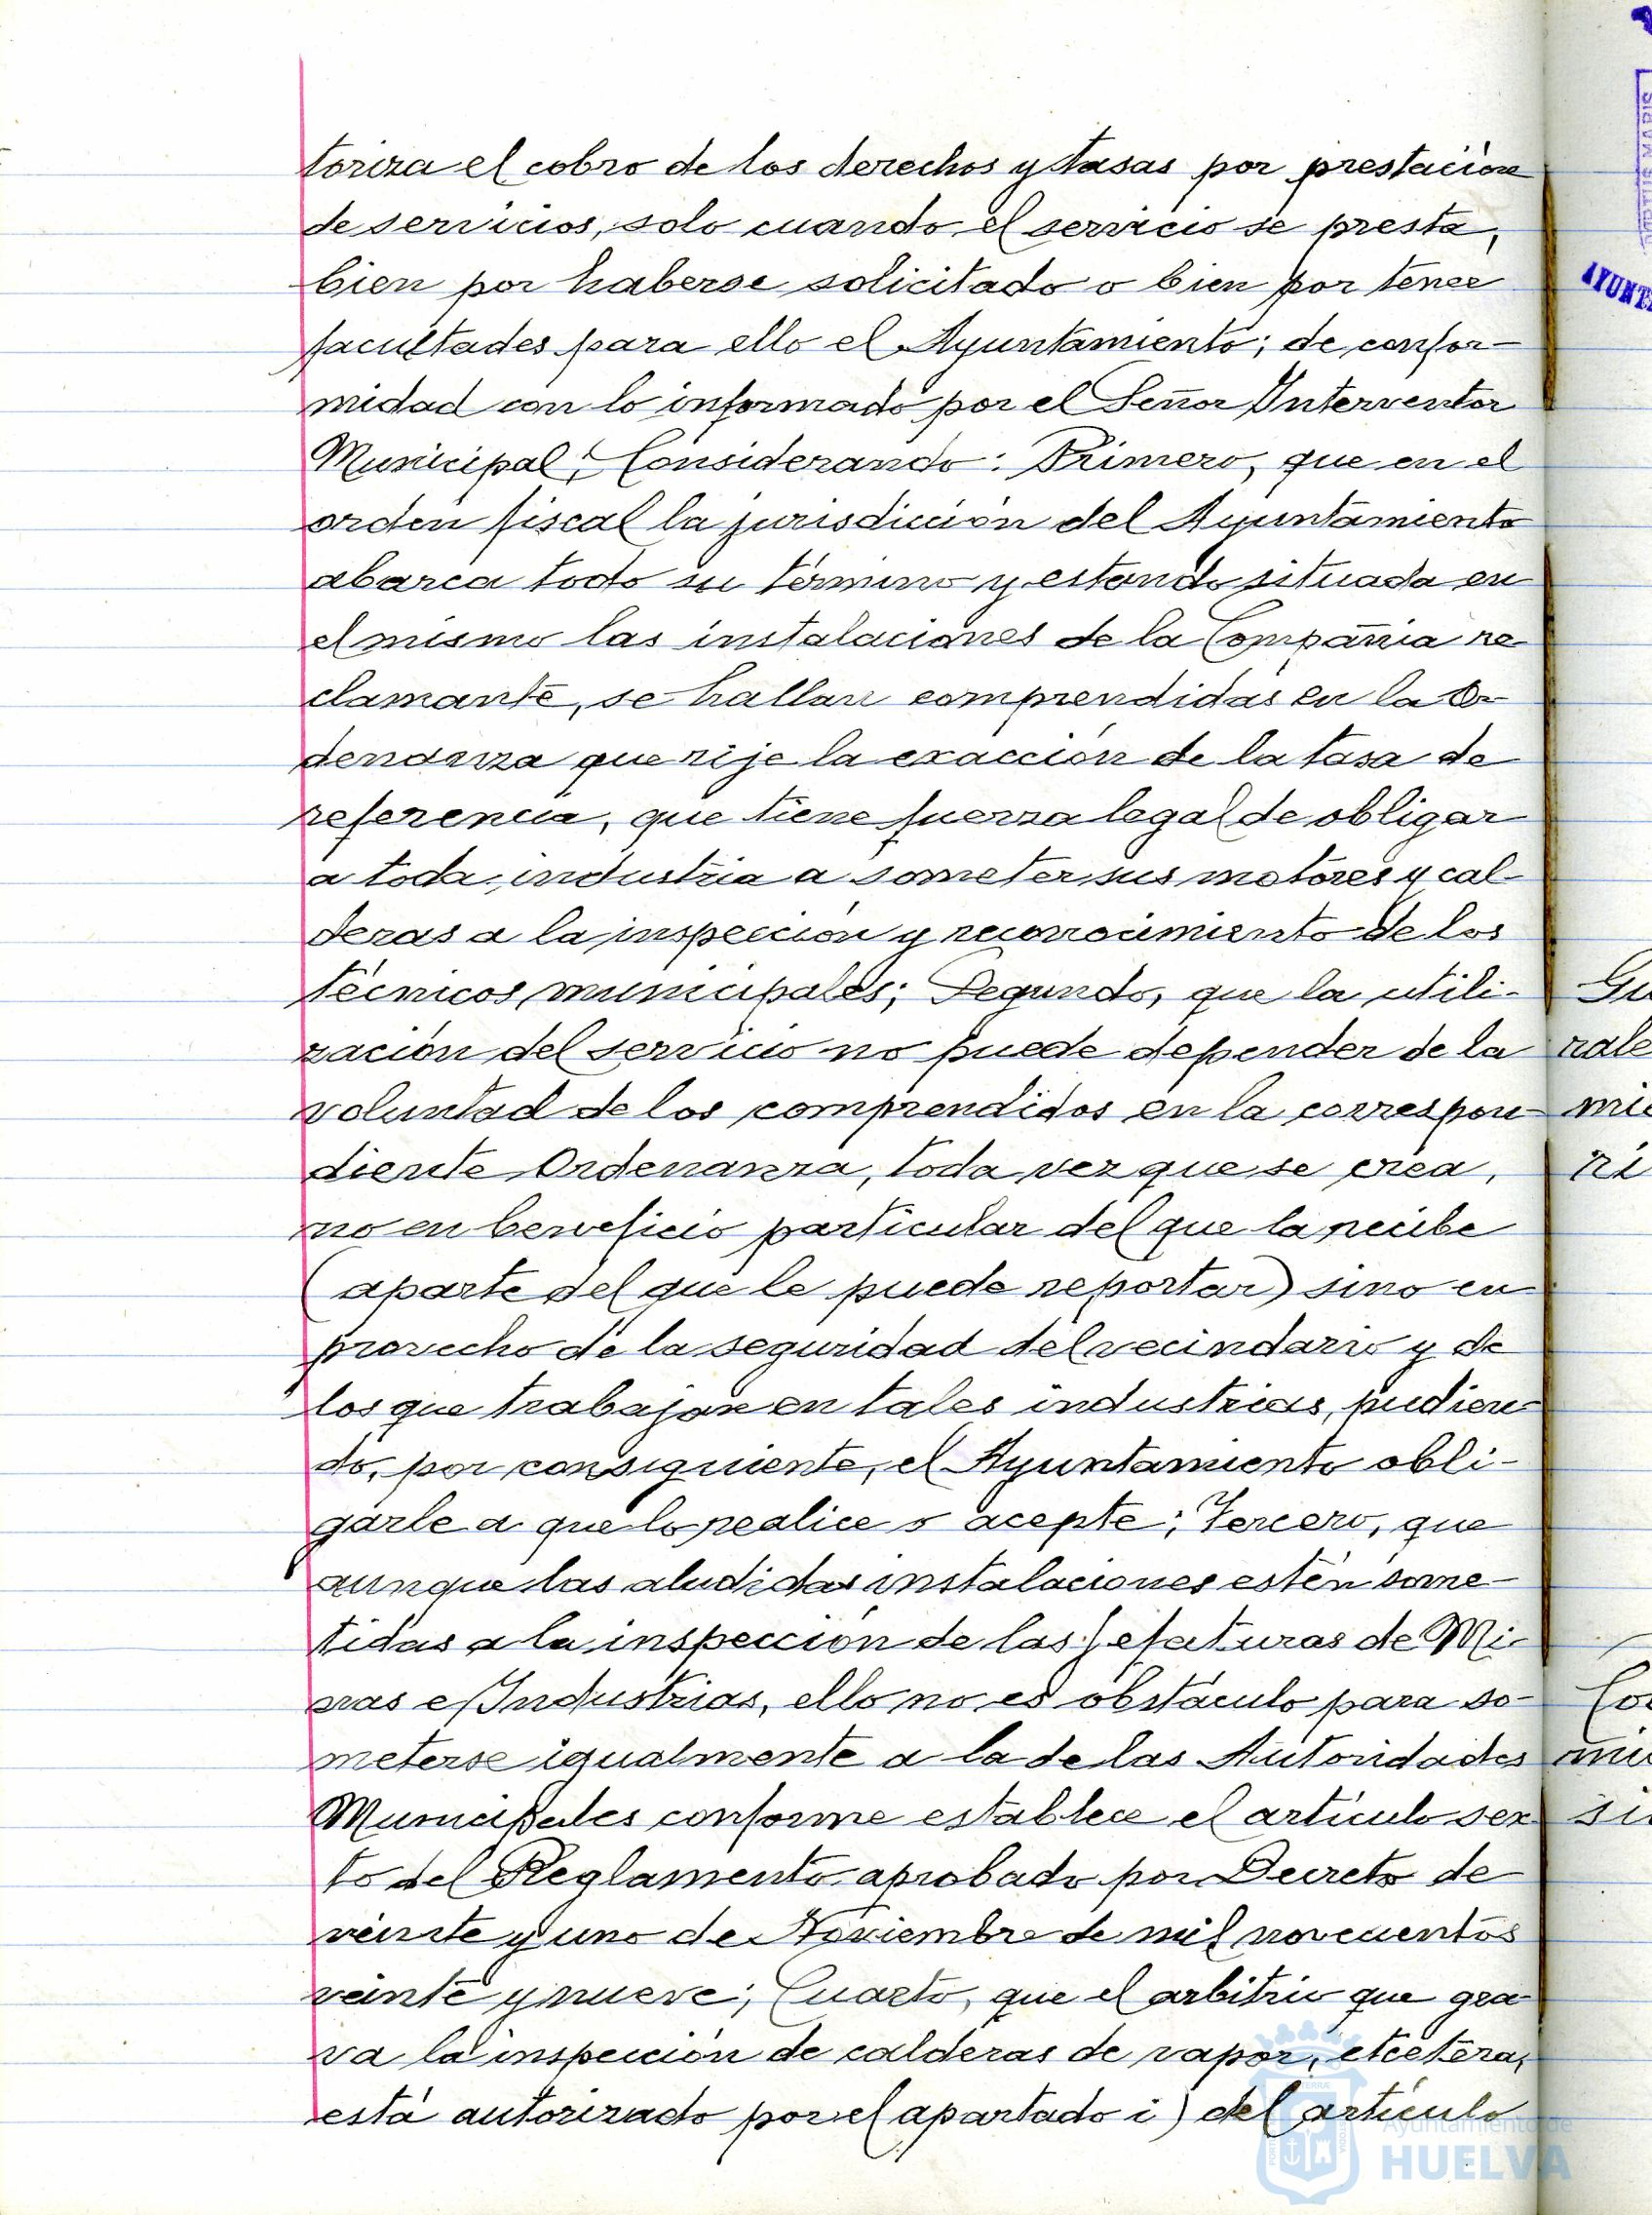 toriza el cobro de los derechos y tasas por prestación
de servicios, solo cuando el servicio se presta,
bien por haberse solicitado o bien por tener
facultades para ello el Ayuntamiento; de confor-
midad con lo informado por el Señor Interventor
Municipal; Considerando: Primero, que en el
orden fiscal la jurisdicción del Ayuntamiento
abarca todo su término y estando situada en
el mismo las instalaciones de la Compañia re-
clamante, se hallan comprendidas en la Or-
denanza que rije la exacción de la tasa de
referencia, que tiene fuerza legal de obligar
a toda industria a someter sus motores y cal-
deras a la inspección y reconocimiento de los
técnicos municipales; Segundo, que la utili-
zación del servicio no puede depender de la
voluntad de los comprendidos en la correspon-
diente Ordenanza, toda vez que se crea,
no en beneficio particular del que la recibe
(aparte del que le puede reportar) sino en
provecho de la seguridad del vecindario y de
los que trabajan en tales industrias, pudien-
do, por consiguiente, el Ayuntamiento obli-
garle a que lo realice o acepte; Tercero, que
aunque las aludidas instalaciones estén some-
tidas a la inspección de las Jefaturas de Mi-
nas e Industrias, ello no es obstáculo para so-
meterse igualmente a la de las Autoridades
Municipales conforme establece el artículo sex-
to del Reglamento aprobado por Decreto de
veinte y uno de Noviembre de mil novecientos
veinte y nueve; Cuarto, que el arbitrio que gra-
va la inspección de calderas de vapor, etcétera,
está autorizado por el apartado i) del artículo
Ayuntamiento de
HUELVA
AYUNT
Gu
rale
mie
ri
Co
mi
si